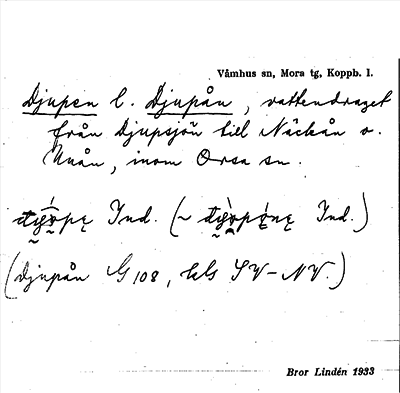 Våmhus sn, Mora tg, Koppb. l.
Djupen l. Djupån, vattendraget
från Djupsjön till Näckån o.
Unån, inom Orsa sn.
Ind. (~ Ind.)
(Djupån G 108, bl. SV-NV.)
Bror Lindén 1933